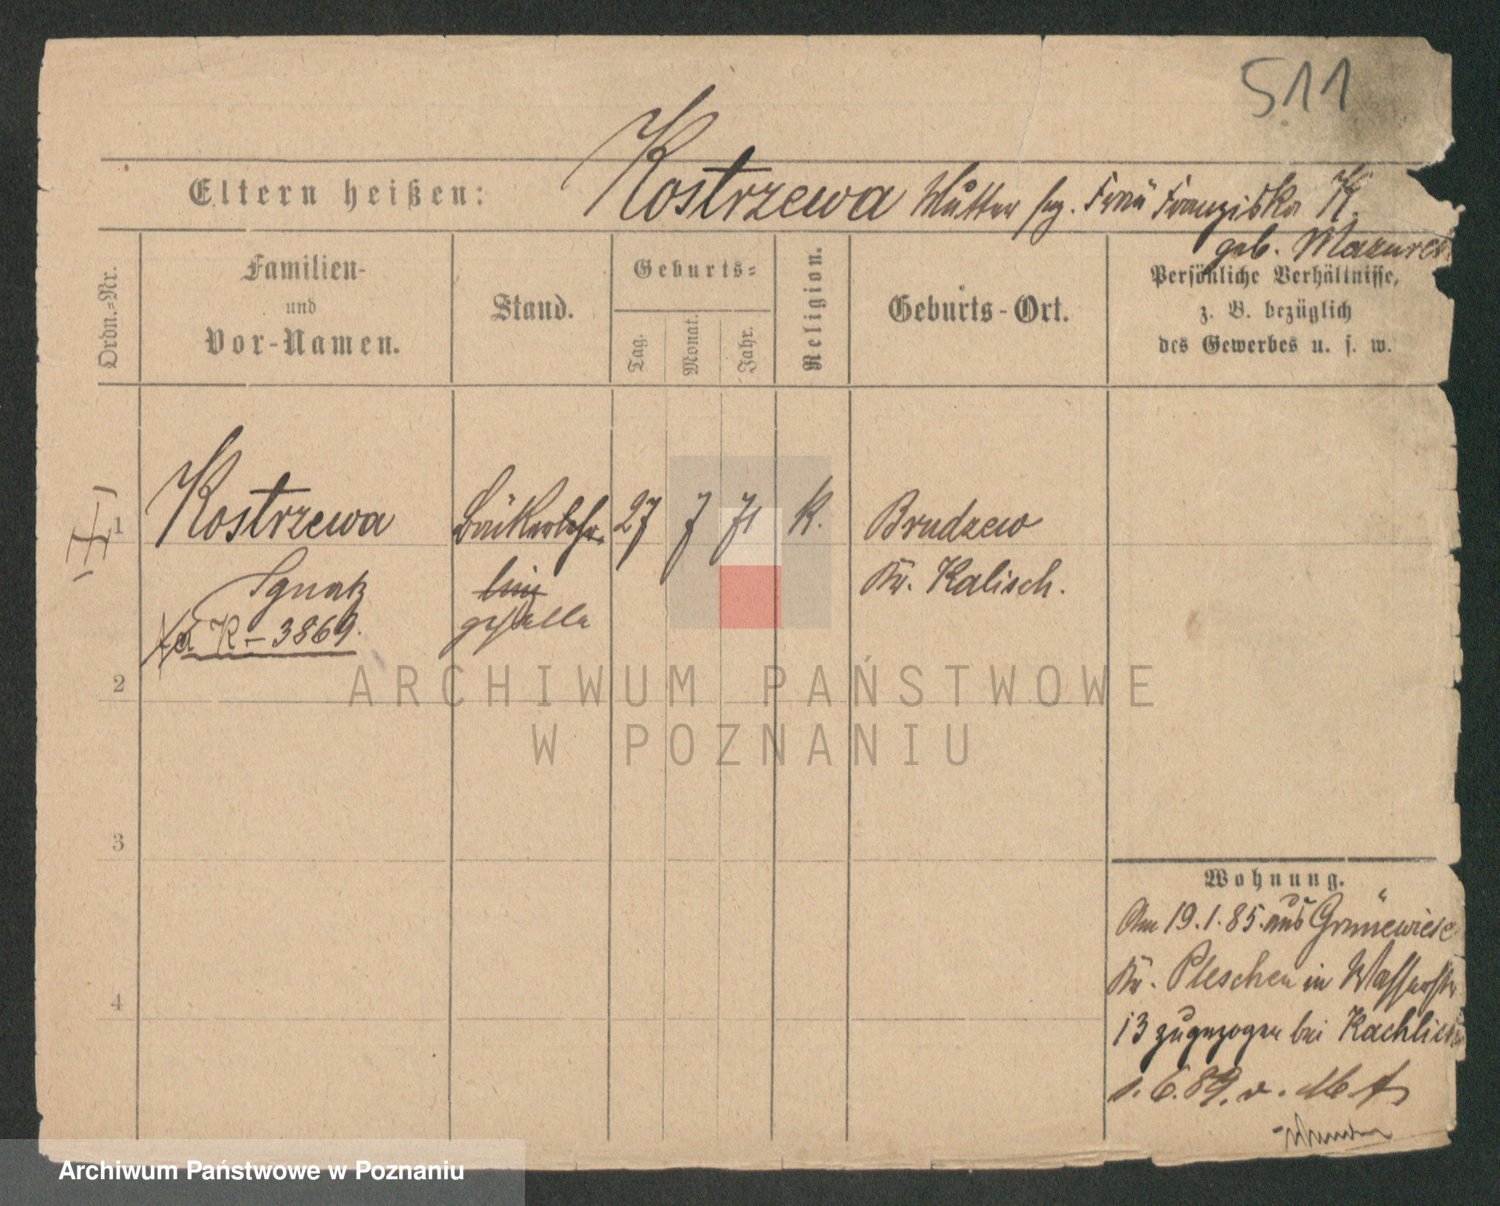 511
Eltern heißen: Kostrzewa Mutter sep. Frau Franziska K.
geb. Mazurek
Ordn.-Nr.
Familien-
und
Vor-Namen.
Stand.
Geburts-
Tag.
Monat.
Jahr.
Religion.
Geburts-Ort.
Persönliche Verhältnisse,
z. B. bezüglich
des Gewerbes u. s. w.
1 Kostrzewa Bäckerlehr- 27 7 71 K. Brudzew
Ignatz ling Kr. Kalisch.
K-3869. geselle
2
ARCHIWUM PAŃSTWOWE
W POZNANIU
3
4
Wohnung.
Am 19.1.85. aus Grünewiese
Kr. Pleschen in Wasserstr
13 zugezogen bei Kachlicki
1.6.89. v.
Archiwum Państwowe w Poznaniu